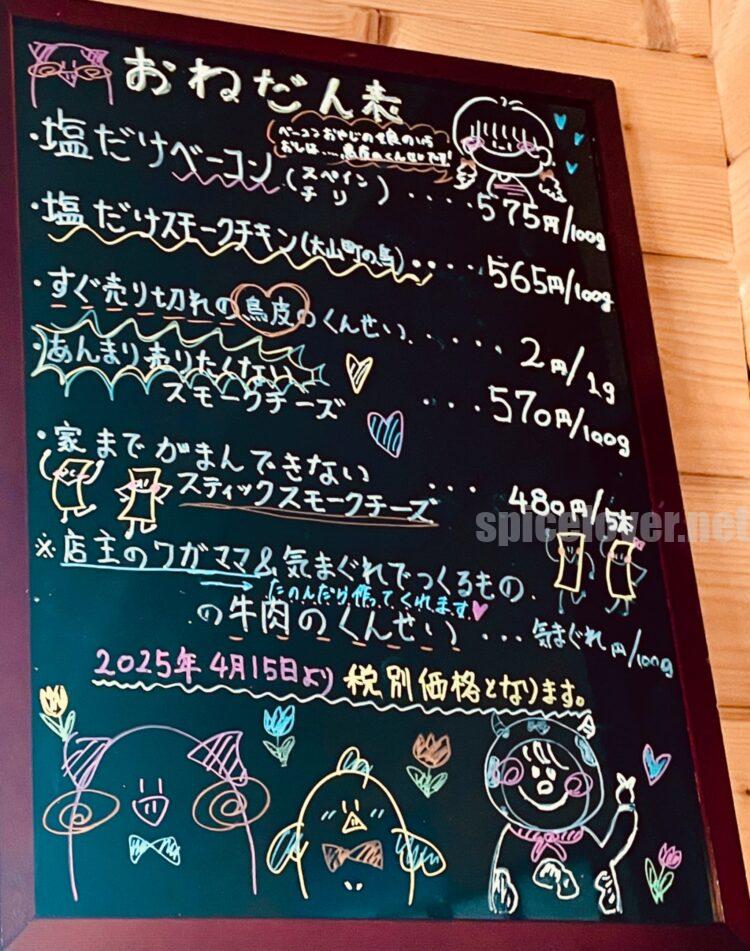 おねだん表
ベーコンおやじの娘のいち
おしは……鳥皮のくんせいです!
・塩だけベーコン(スペイン チリ)‥‥575円/100g
・塩だけスモークチキン(大山町の鳥)‥‥565円/100g
・すぐ売り切れの鳥皮のくんせい‥‥‥2円/1g
・あんまり売りたくない
スモークチーズ ‥‥570円/100g
・家までがまんできない
スティックスモークチーズ ‥‥480円/5本
spicelover.net
※店主のワガママ&気まぐれでつくるもの
→たのんだら作ってくれます♥
の牛肉のくんせい‥‥気まぐれ円/100g
2025年4月15日より税別価格となります。